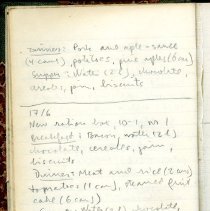 Dinner: Pork and aple-sauce
(4 cans), potatoes, pine aples (6 cans)
Supper: Water (2 l), chocolate,
cereales, jam, biscuits
17/6
New ration box 10-1, no 1
Breakfast: Bacon, water (2 l)
chocolate, cereales, jam,
biscuits
Dinner: Meat and rice (2 cans)
tomatoes (1 can), steamed fruit
cake (6 cans)
chocolate,